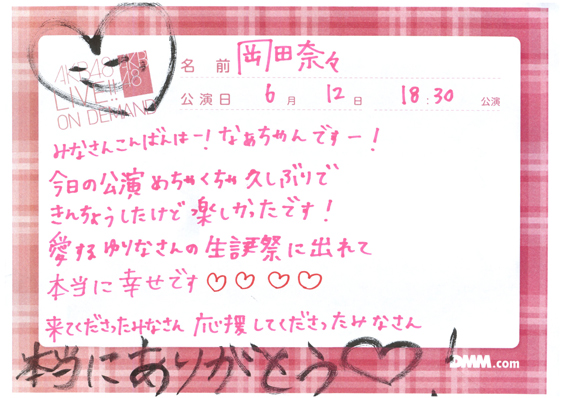 AKB48
LIVE!!
ON DEMAND
AKB
48
名 前 岡田奈々
公演日 6月 12日 18:30 公演
みなさんこんばんはー!なぁちゃんですー!
今日の公演めちゃくちゃ久しぶりで
きんちょうしたけど楽しかったです!
愛するゆりなさんの生誕祭に出れて
本当に幸せです♡♡♡♡
来てくださったみなさん 応援してくださったみなさん
本当にありがとう♡!
DMM.com